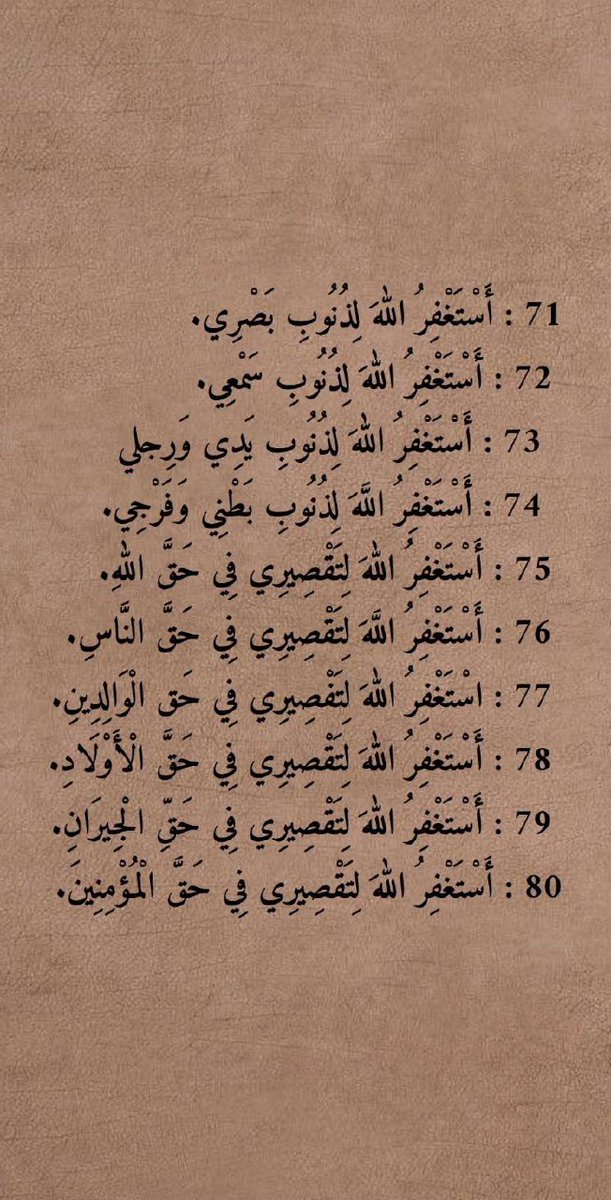 71 : أَسْتَغْفِرُ اللهَ لِذُنُوبِ بَصْرِي.
72 : أَسْتَغْفِرُ اللهَ لِذُنُوبِ سَمْعِي.
73 : أَسْتَغْفِرُ اللهَ لِذُنُوبِ يَدِي وَرِجلي
74 : أَسْتَغْفِرُ اللَّهَ لِذُنُوبِ بَطْنِي وَفَرْجِي.
75 : أَسْتَغْفِرُ اللهَ لِتَقْصِيرِي فِي حَقَّ اللهِ.
76 : أَسْتَغْفِرُ اللَّهَ لِتَقْصِيرِي فِي حَقَّ النَّاسِ.
77 : اسْتَغْفِرُ اللهَ لِتَقْصِيرِي فِي حَق الْوَالِدِينِ.
78 : أَسْتَغْفِرُ اللهَ لِتَقْصِيرِي فِي حَقَّ الْأَوْلَادِ.
79 : أَسْتَغْفِرُ اللهَ لِتَقْصِيرِي فِي حَقِّ الْجِيرَانِ.
80 : أَسْتَغْفِرُ اللهَ لِتَقْصِيرِي فِي حَقَّ الْمُؤْمِنِينَ.